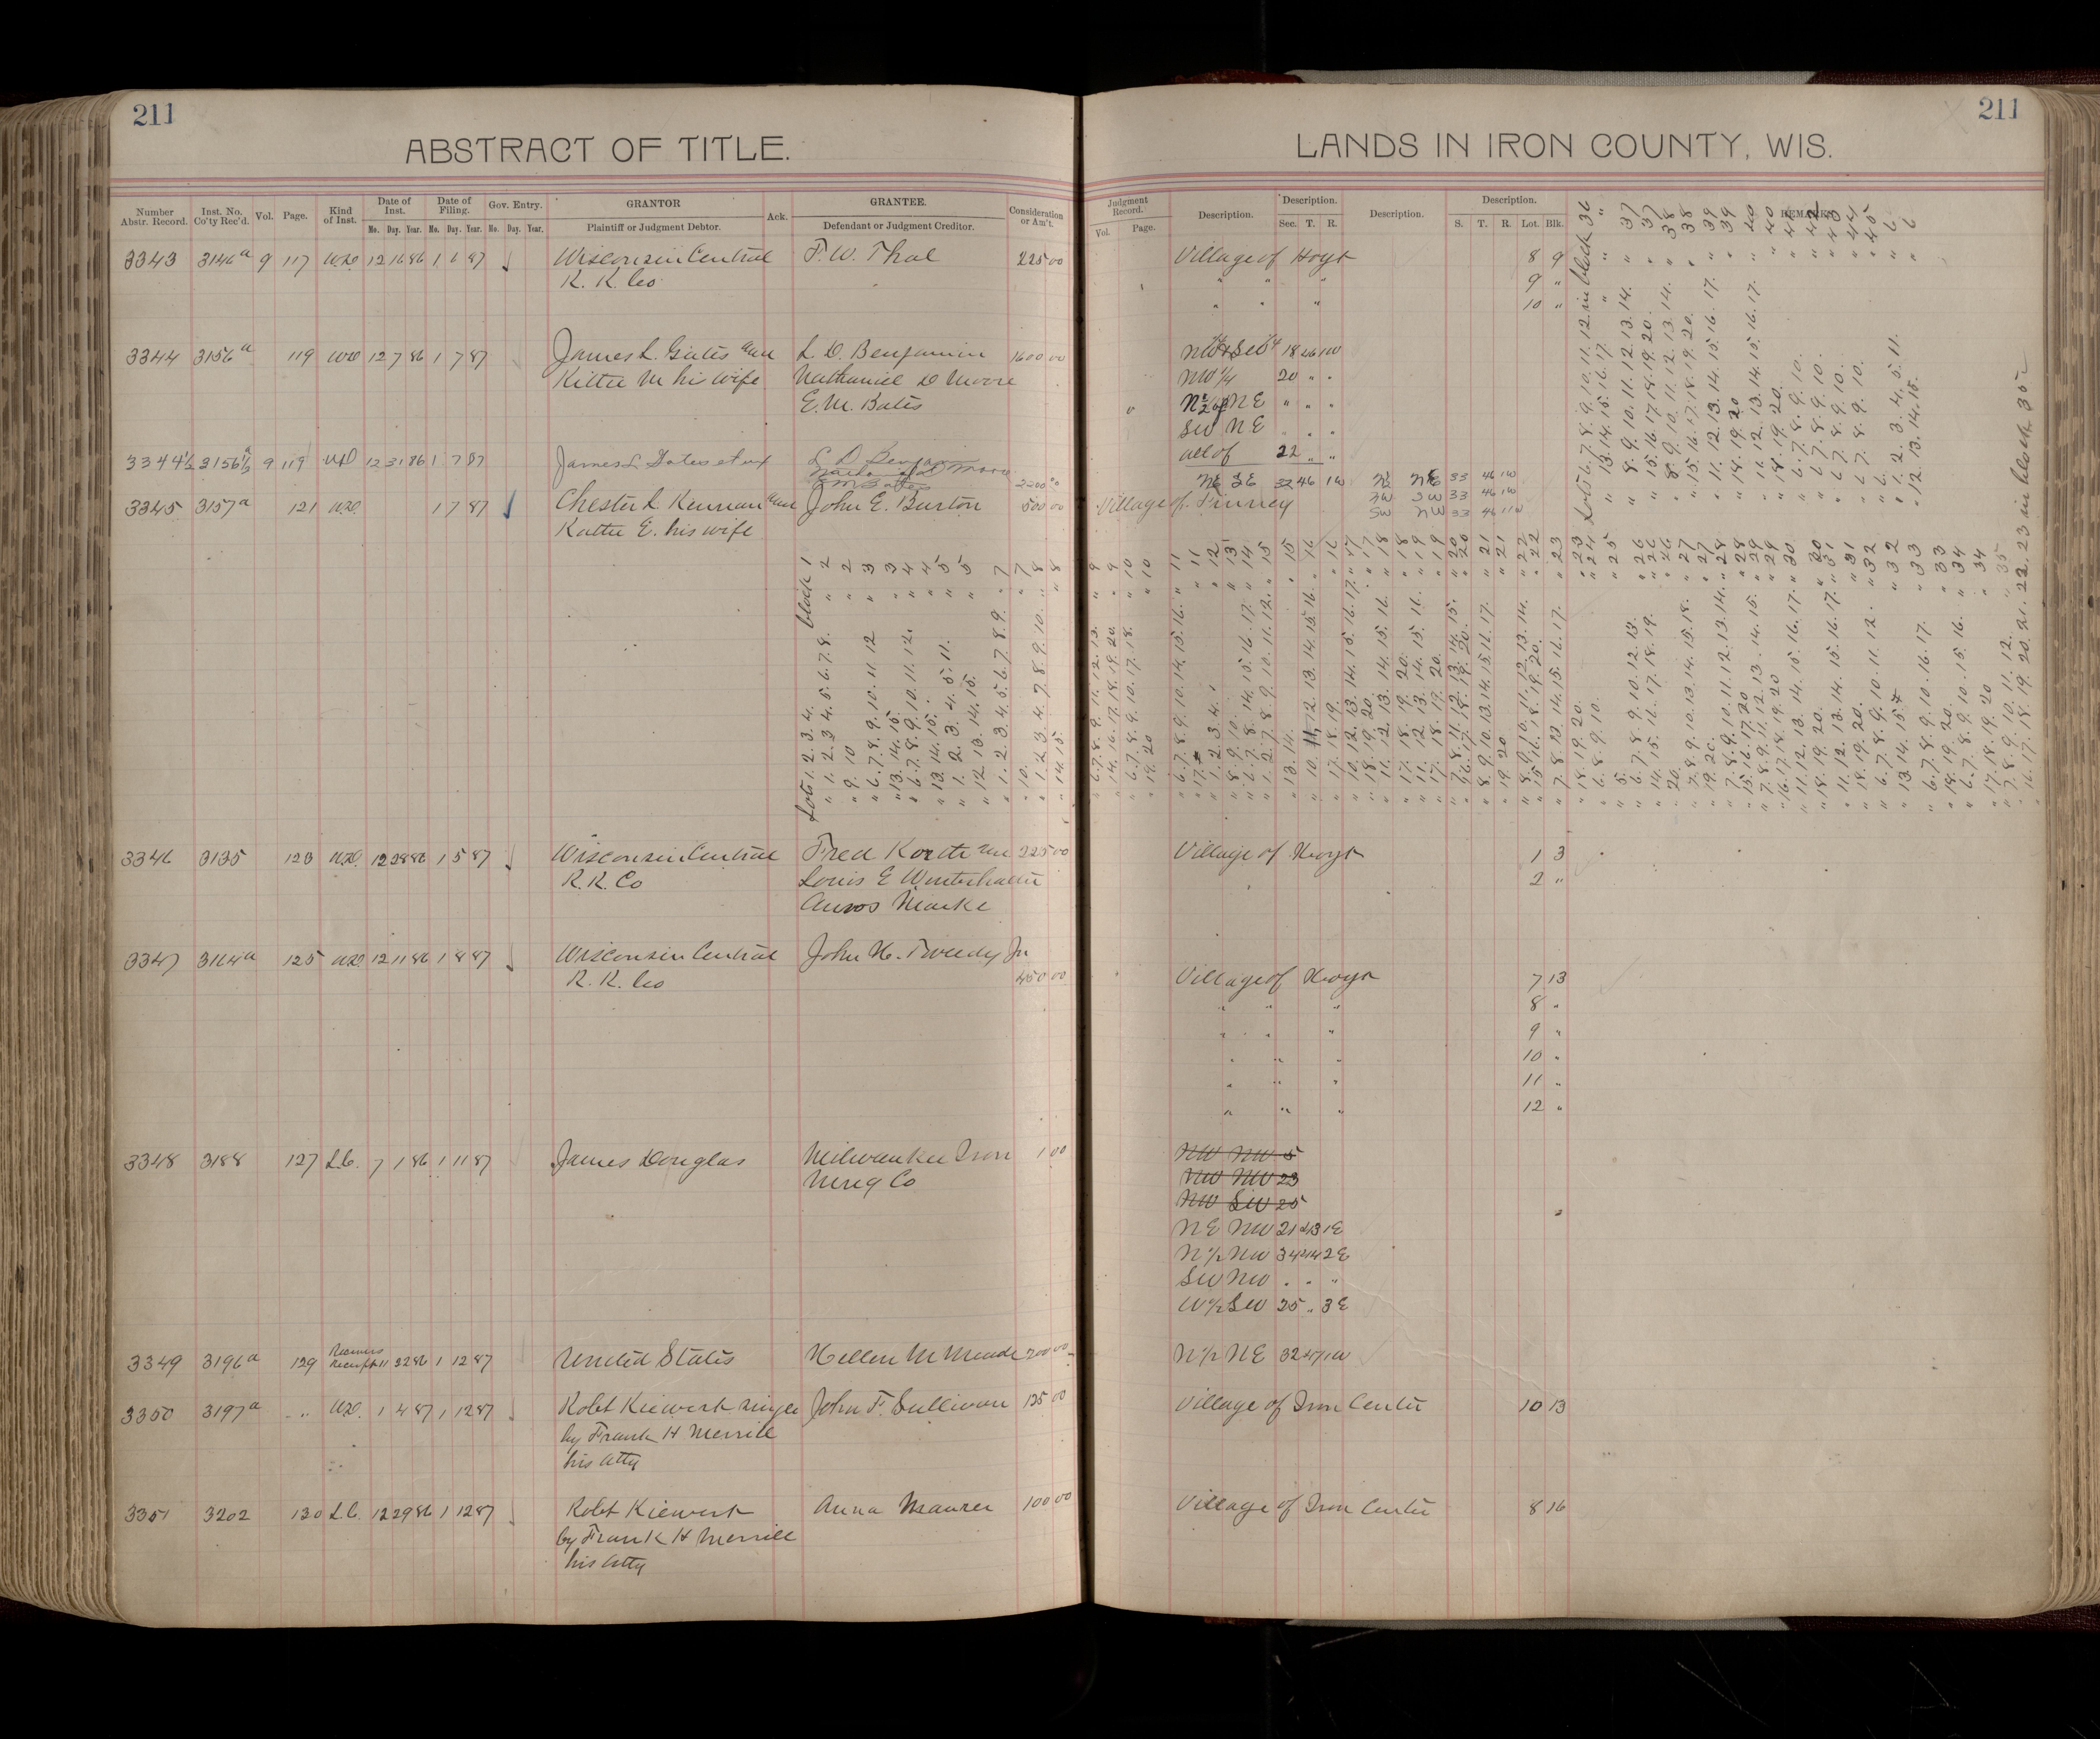 211
ABSTRACT OF TITLE.
Number Abstr. Record.
Inst. No. Co'ty Rec'd.
Vol.
Page.
Kind of Inst.
Date of Inst.
Mo. Day. Year.
Date of Filing.
Mo. Day. Year.
Gov. Entry.
Mo. Day. Year.
GRANTOR
Plaintiff or Judgment Debtor.
Ack.
GRANTEE.
Defendant or Judgment Creditor.
Consideration or Am't.
211
LANDS IN IRON COUNTY, WIS.
Judgment Record.
Vol. Page.
Description.
Description.
Sec. T. R.
Description.
Description.
S. T. R. Lot. Blk.
3343 3146a 9 117 WD 12 16 86 1 6 87 Wisconsin Central F. W. Thal 225 00 Village of Hoyt 8 9
R. R. Co " " " 9 "
" " " 10 "
3344 3156a 119 WD 12 7 86 1 7 87 James L. Gates and L. D. Benjamin 1600 00 18 46 1W
Kittie M his wife Nathaniel D Moore NW 1/4 20 " "
E. M. Bates N 1/2 of NE " " "
SW NE " " "
all of 22 " "
3344½ 3156½ 9 119 WD 12 31 86 1 7 87 James L Gates et ux L D Benjamin
E M Bates 2200 00 NE SE 32 46 1W 33 46 1W
3345 3157a 121 WD 1 7 87 Chester L Kennan and John E. Burton 500 00 Village of Pinney SW 33 46 1W
Kattie E. his wife SW NW 33 46 1W
Lots 1. 2. 3. 4. block 1
" 1. 2. 3. 4. 5. 6. 7. 8. " 2
" 9. 10 " 2
" 6. 7. 8. 9. 10. 11. 12 " 3
" 13. 14. 15. " 3
" 6. 7. 8. 9. 10. 11. 12. " 4
" 13. 14. 15. " 4
" 1. 2. 3. 4. 5. 11. " 5
" 12. 13. 14. 15. " 5
" 1. 2. 3. 4. 5. 6. 7. 8. 9. " 7
" 10. " 7
" 1. 2. 3. 4. 7. 8. 9. 10. " 8
" 14. 15. " 8
" 6. 7. 8. 9. 11. 12. 13. " 9
" 14. 16. 17. 18. 19. 20. " 9
" 6. 7. 8. 9. 10. 17. 18. " 10
" 19. 20 " 10
" 6. 7. 8. 9. 10. 14. 15. 16. " 11
" 17. " 11
" 1. 2. 3. 4. " 12
" 8. 9. 10. " 13
" 6. 7. 8. 14. 15. 16. 17. " 14
" 1. 2. 7. 8. 9. 10. 11. 12. " 15
" 13. 14. " 15
" 10. 11. 12. 13. 14. 15. 16. " 16
" 17. 18. 19. " 16
" 10. 12. 13. 14. 15. 16. 17. " 17
" 18. 19. 20. " 17
" 11. 12. 13. 14. 15. 16. " 18
" 17. 18. 19. 20. " 18
" 11. 12. 13. 14. 15. 16. " 19
" 17. 18. 19. 20. " 19
" 7. 8. 11. 12. 13. 14. 15. " 20
" 16. 17. 18. 19. 20. " 20
" 8. 9. 10. 13. 14. 15. 16. 17. " 21
" 19. 20 " 21
" 8. 9. 10. 11. 12. 13. 14. " 22
" 15. 16. 18. 19. 20. " 22
" 7. 8. 13. 14. 15. 16. 17. " 23
" 18. 19. 20. " 23
" 6. 8. 9. 10. " 24
" 5. " 25
" 6. 7. 8. 9. 10. 12. 13. " 26
" 14. 15. 16. 17. 18. 19. " 26
" 20. " 26
" 7. 8. 9. 10. 13. 14. 15. 18. " 27
" 19. 20. " 27
" 7. 8. 9. 10. 11. 12. 13. 14. " 28
" 15. 16. 17. 20 " 28
" 7. 8. 9. 11. 12. 13. 14. 15. " 29
" 16. 17. 18. 19. 20 " 29
" 11. 12. 13. 14. 15. 16. 17. " 30
" 18. 19. 20. " 30
" 11. 12. 13. 14. 15. 16. 17. " 31
" 18. 19. 20. " 31
" 6. 7. 8. 9. 10. 11. 12. " 32
" 13. 14. 15. " 32
" 6. 7. 8. 9. 10. 16. 17. " 33
" 18. 19. 20. " 33
" 6. 7. 8. 9. 10. 15. 16. " 34
" 17. 18. 19. 20 " 34
" 7. 8. 9. 10. 11. 12. " 35
" 16. 17. 18. 19. 20. 21. 22. 23 in block 35
Lots 6. 7. 8. 9. 10. 11. 12. in block 36
" 13. 14. 15. 16. 17. " "
" 8. 9. 10. 11. 12. 13. 14. " 37
" 15. 16. 17. 18. 19. 20. " 37
" 8. 9. 10. 11. 12. 13. 14. " 38
" 15. 16. 17. 18. 19. 20. " 38
" 11. 12. 13. 14. 15. 16. 17. " 39
" 18. 19. 20 " 39
" 11. 12. 13. 14. 15. 16. 17. " 40
" 18. 19. 20. " 40
" 6. 7. 8. 9. 10.
" 6. 7. 8. 9. 10. " 42
" 6. 7. 8. 9. 10. " 43
" 6. 7. 8. 9. 10. " 44
" 6. " 45
" 1. 2. 3. 4. 5. 11. " 6
" 12. 13. 14. 15. " 6
3346 3135 123 WD. 12 28 86 1 5 87 Wisconsin Central Fred Korth and 225 00 Village of Hoyt 1 3
R. R. Co Louis E Winterhalter 2 "
3347 3164a 125 WD. 12 11 86 1 8 87 Wisconsin Central John H. Tweedy Jr
R. R. Co 450 00 Village of Hoyt 7 13
" " " 8 "
" " " 9 "
" " " 10 "
" " " 11 "
" " " 12 "
3348 3188 127 L.C. 7 1 86 1 11 87 James Douglas Milwaukee Iron 1 00 NW NW 5
Mng Co NW NW 23
NW SW 25
NE NW 21 43 1E
N½ NW 34 44 2E
SW NW " " "
W½ SW 25 " 3E
3349 3196a 129 Receivers Receipt 11 32 86 1 12 87 United States Hellen M Meade 200 00 N½ NE 32 47 1W
3350 3197a " WD. 1 4 87 1 12 87 Robt Kiewert single John F. Sullivan 125 00 Village of Iron Center 10 13
by Frank H Merrill
his atty
3351 3202 130 L.C. 12 29 86 1 12 87 Robt Kiewert Anna Maurer 100 00 Village of Iron Center 8 16
by Frank H Merrill
his atty